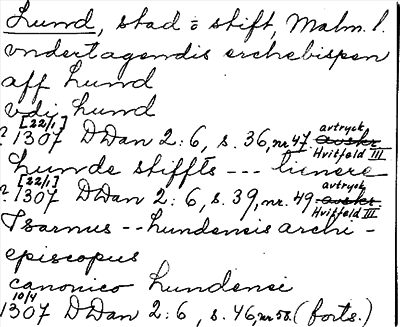 Lund, stad o stift, Malm. l.
vndertagendis erchebispen
aff Lund
vdj Lund
[22/1] avtryck
? 1307 DDan 2:6, s. 36, nr 47. avskr. Hvitfeld III
Lunde stiffts --- lienere
[22/1] avtryck
? 1307 DDan 2:6, s. 39, nr. 49 avskr. Hvitfeld III.
Isarnus -- Lundensis archi-
episcopus
canonico Lundensi
10/4
1307 DDan 2:6, s. 46, nr 58. (forts.)